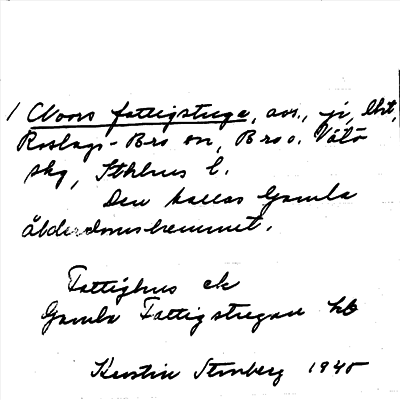 / Noors fattigstuga, avs., jr, lht,
Roslags-Bro sn, Bro o. Vätö
skg, Sthlms l.
Den kallas Gamla
ålderdomshemmet.
Fattighus ek
Gamla Fattigstugan hb
Kerstin Stenberg 1945